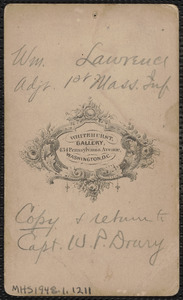 Wm. Lawrence
Adj. 1st Mass. Inf
WHITEHURST
GALLERY,
434 Pennsylvania Avenue,
WASHINGTON, D.C.
Copy & return to
Capt. W. P. Drury
MHS1948.1.1211